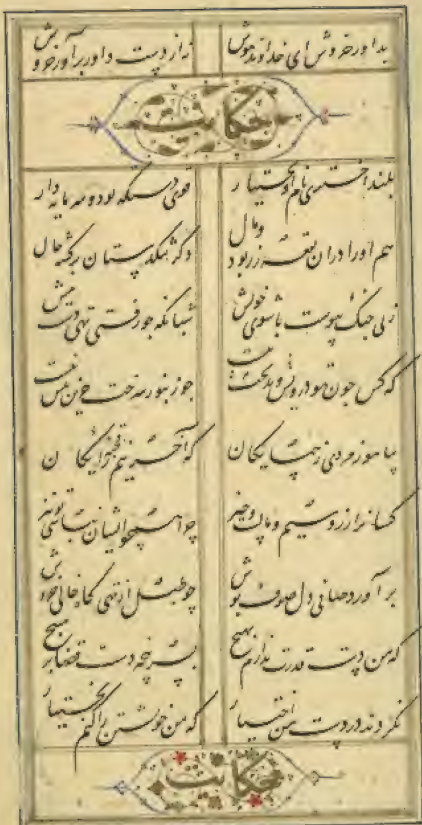 بداور خروش ای خداوند هوش نه از دست داور برآور خروش
حکایت
بلند اختری نام او بختیار قوی دستگه بود و سرمایه دار
هم او را در آن بقعه زر بود و مال دگر تنگدستان برگشته حال
زنی جنگ پیوست با شوی خویش شبانگه چو رفتی تهی دست پیش
که کس چون تو درویش و بدبخت نیست چو زنبور سرخت جز این نیش نیست
بیاموز مردی ز همسایگان که آخر نیم قحبه رایگان
کسانرا زر و سیم و مالست و چیز چرا همچو ایشان نباشی تو نیز
برآورد صافی دل صوف پوش چو طبل از تهی گاه خالی خروش
که من دست قدرت ندارم بهیچ بسر پنجه دست قضا بر مپیچ
نکردند در دست من اختیار که من خویشتن را کنم بختیار
حکایت